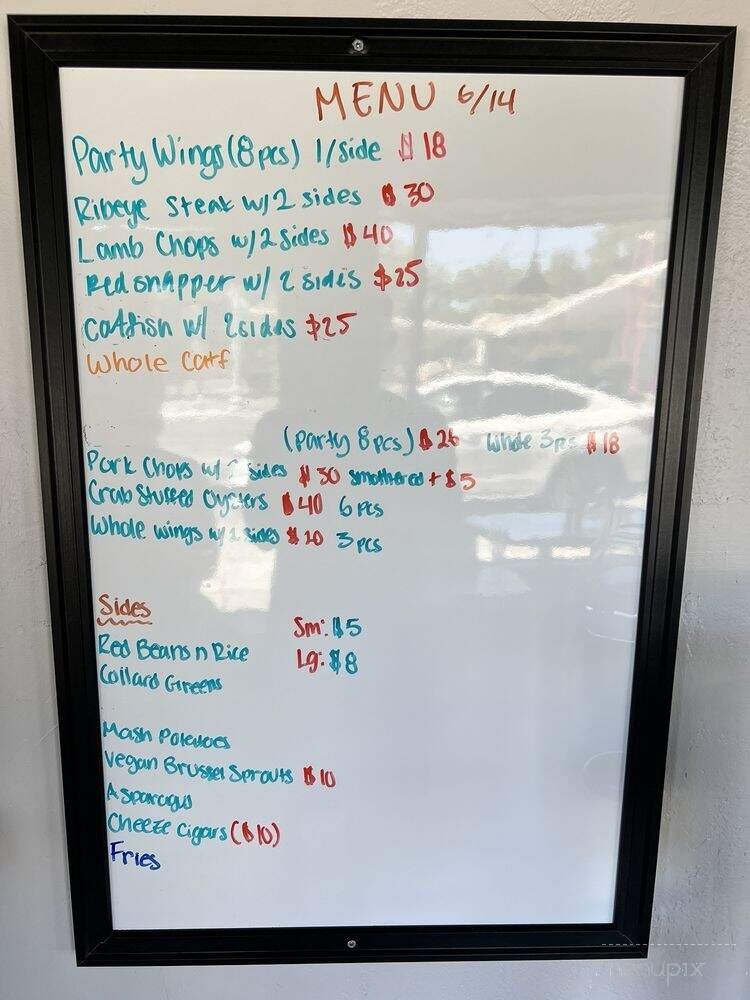 MENU 6/14
Party Wings (8 pcs) 1/side $ 18
Ribeye Steak w/ 2 sides $ 30
Lamb Chops w/ 2 Sides $ 40
Red snapper w/ 2 sides $25
Catfish w/ 2 sides $25
Whole Catf
(Party 8 pcs) $ 26 Whole 3 pcs $ 18
Pork Chops w/ 2 sides $ 30 smothered + $ 5
Crab Stuffed Oysters $ 40 6 pcs
Whole wings w/ sides $ 20 3 pcs
Sides
Red Beans n Rice Sm: $5
Collard Greens Lg: $8
Mash Potatoes
Vegan Brussel Sprouts $ 10
Asparagus
Cheeze Cigars ($10)
Fries
menupix